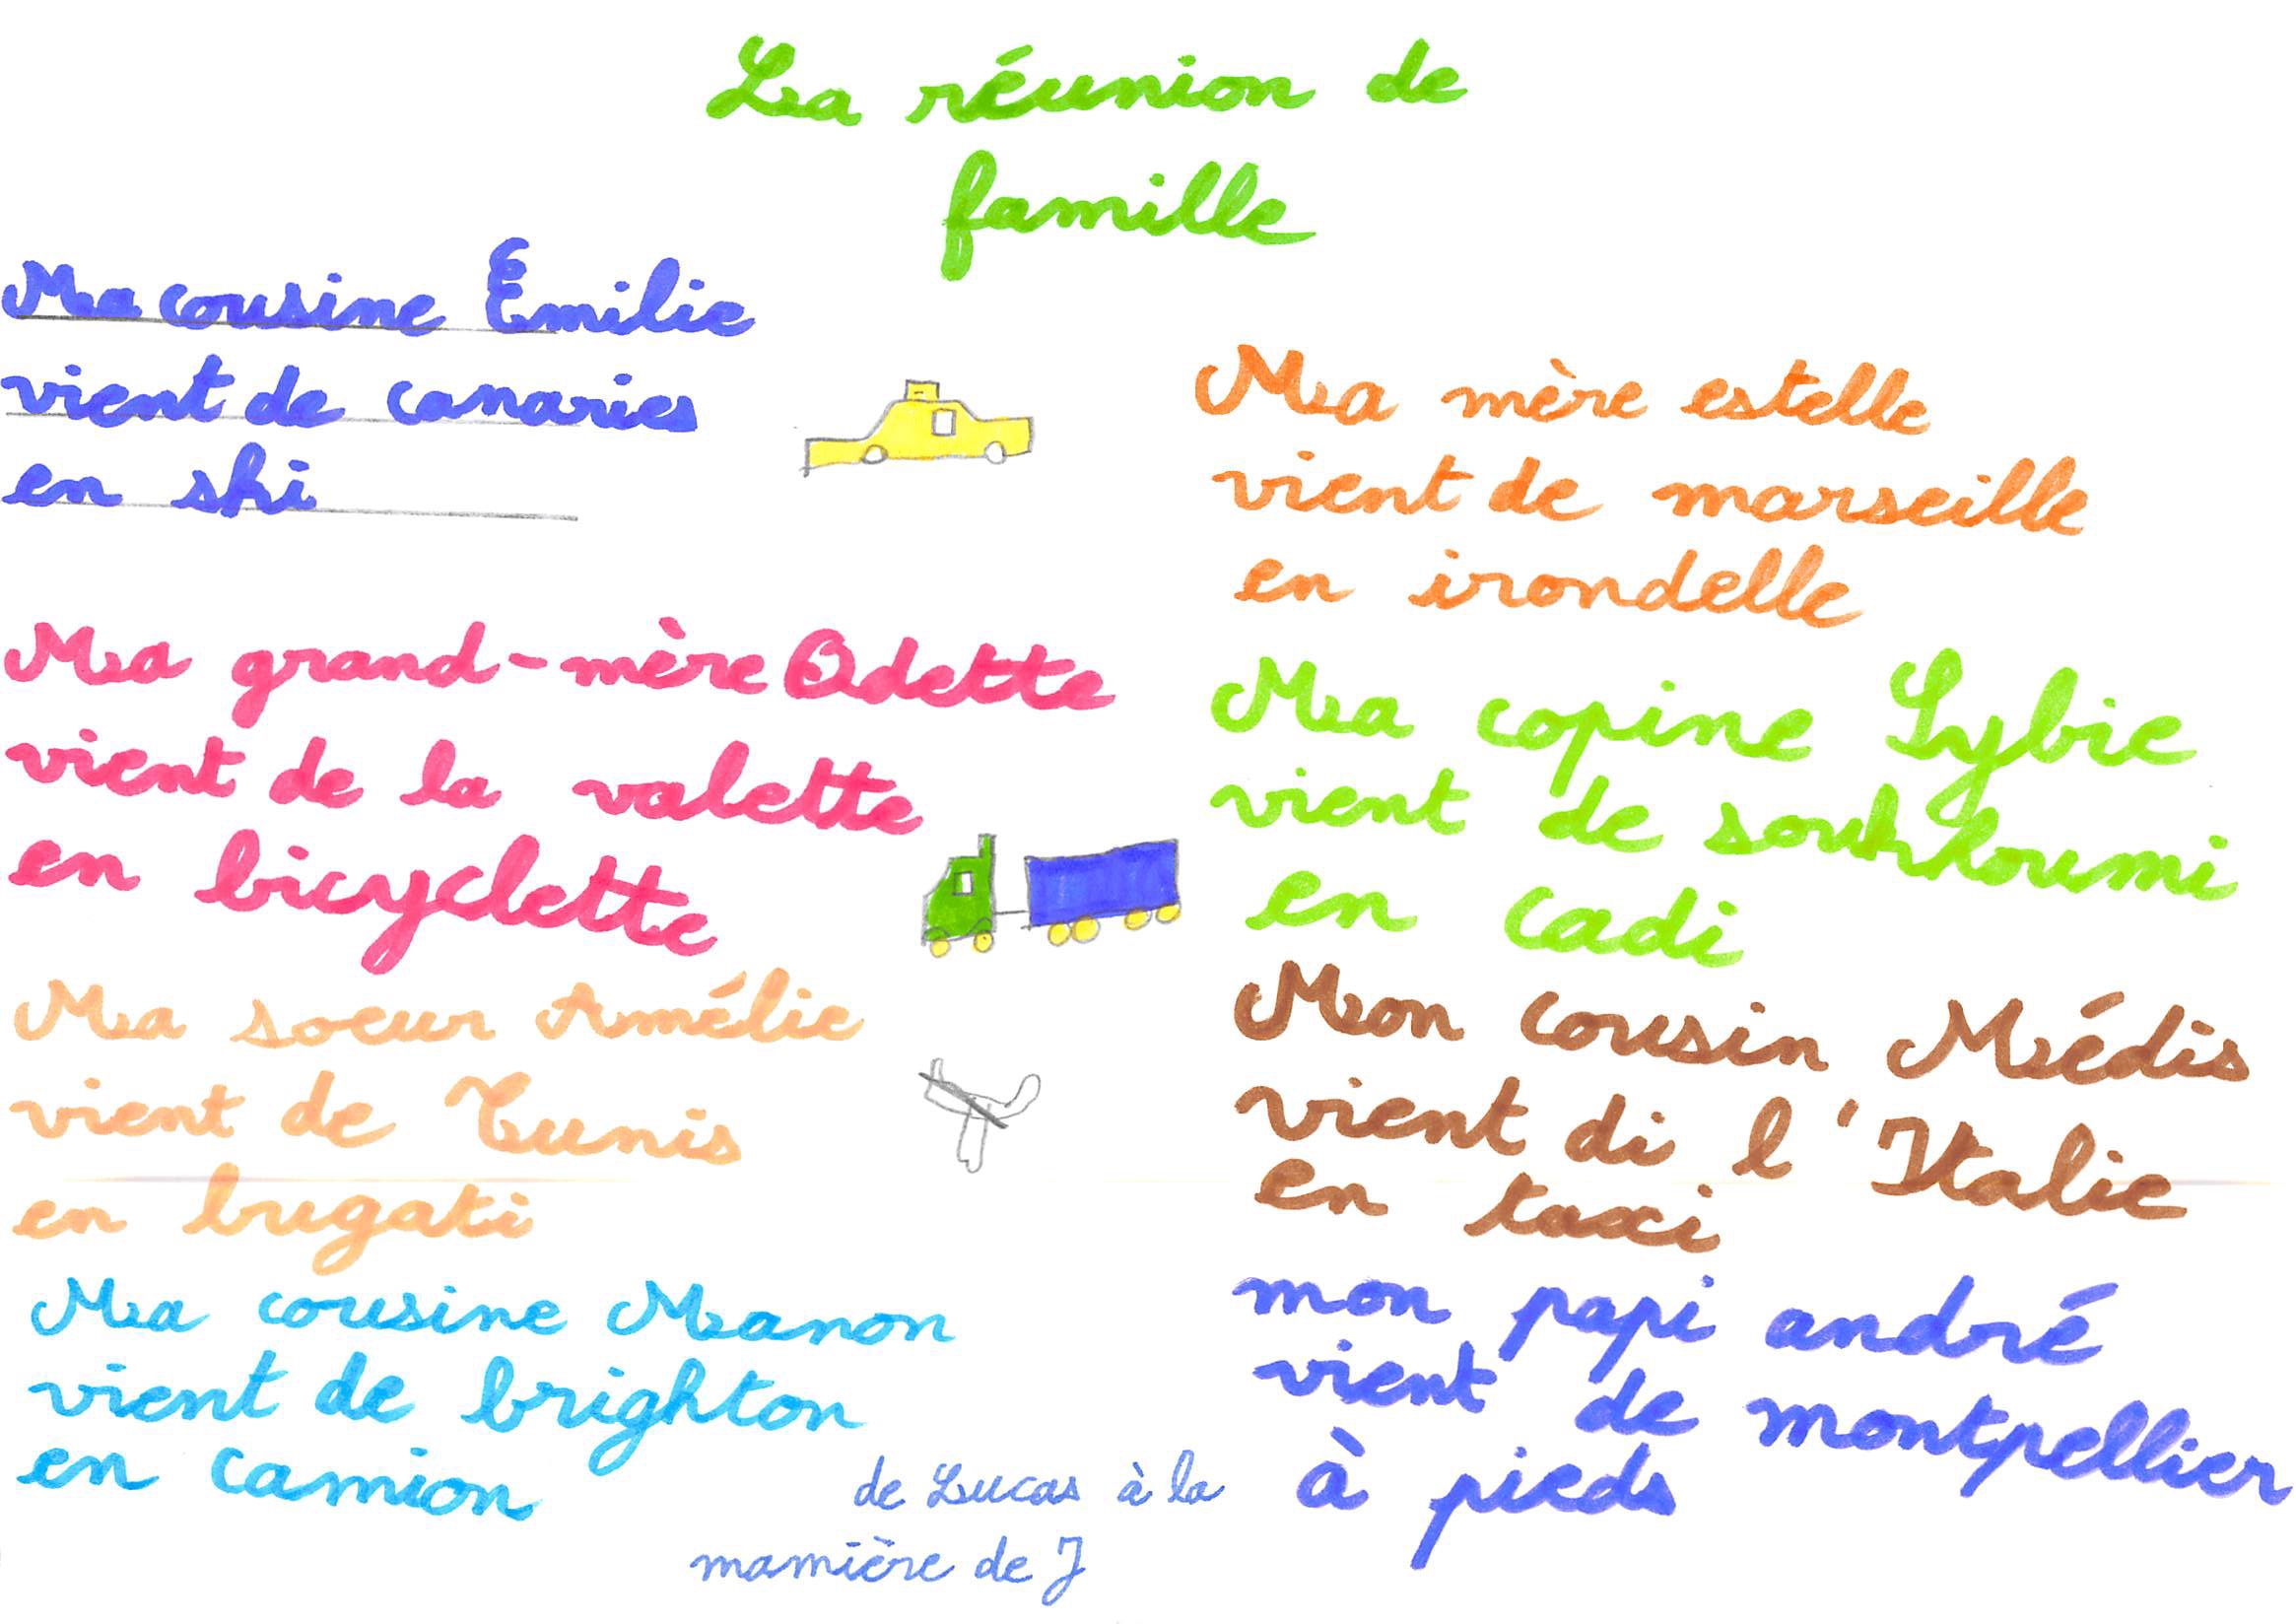 La réunion de
famille
Ma cousine Émilie
vient de canaries
en ski
Ma grand-mère Odette
vient de la valette
en bicyclette
Ma soeur Amélie
vient de Tunis
en bugati
Ma cousine Manon
vient de brighton
en camion
Ma mère estelle
vient de marseille
en irondelle
Ma copine Lybie
vient de soukhoumi
en cadi
Mon cousin Médis
vient di l'Italie
en taxi
mon papi andré
vient de montpellier
à pieds
de Lucas à la
mamière de J